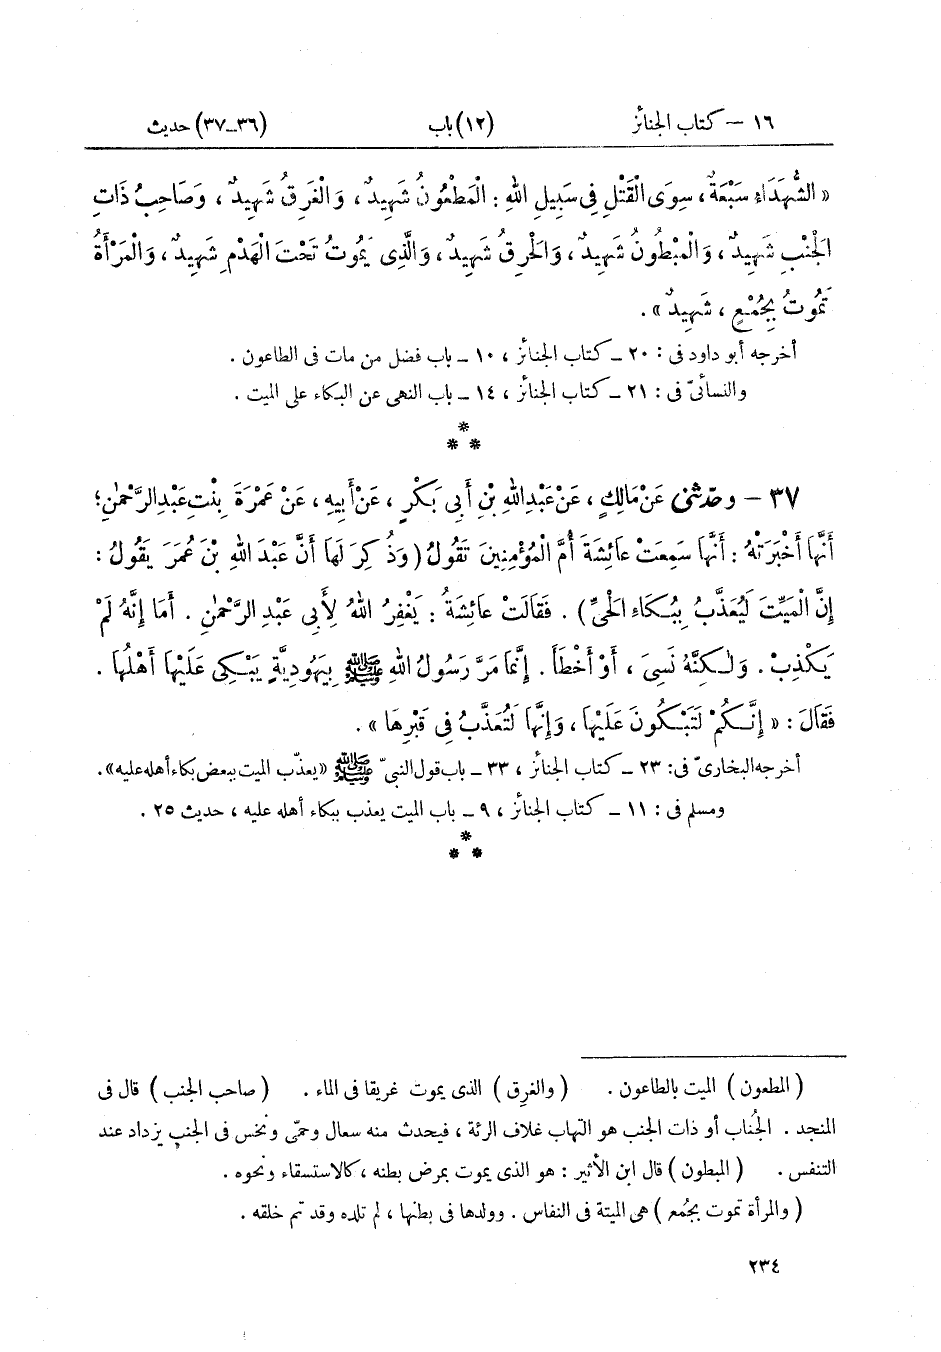 ١٦ – كتاب الجنائز (١٢) باب (٣٦–٣٧) حديث
« الشُّهَدَاء سَبْعَةٌ ، سِوَى الْقَتْلِ فِي سَبِيلِ اللهِ : الْمَطْعُونُ شَهِيدٌ ، وَالْغَرِقُ شَهِيدٌ ، وَصَاحِبُ ذَاتِ
الْجَنْبِ شَهِيدٌ ، وَالْمَبْطُونُ شَهِيدٌ ، وَالْحَرِقُ شَهِيدٌ ، وَالَّذِى يَمُوتُ تَحْتَ الْهَدْمِ شَهِيدٌ ، وَالْمَرْأَةُ
تَمُوتُ بِجُمْعٍ ، شَهِيدٌ » .
أخرجه أبو داود فى : ٢٠ ـ كتاب الجنائز ، ١٠ ـ باب فضل من مات فى الطاعون .
والنسائىّ فى : ٢١ ـ كتاب الجنائز ، ١٤ ـ باب النهى عن البكاء على الميت .
*
* *
٣٧ – وحَدَّثَنِى عَنْ مَالِكٍ ، عَنْ عَبْدِ اللهِ بْنِ أَبِى بَكْرٍ ، عَنْ أَبِيهِ ، عَنْ عَمْرَةَ بِنْتِ عَبْدِ الرَّحْمٰنِ ؛
أَنَّهَا أَخْبَرَتْهُ : أَنَّهَا سَمِعَتْ عَائِشَةَ أُمَّ الْمُؤْمِنِينَ تَقُولُ ( وَذُكِرَ لَهَا أَنَّ عَبْدَ اللهِ بْنَ عُمَرَ يَقُولُ :
إِنَّ الْمَيِّتَ لَيُعَذَّبُ بِبُكَاءِ الْحَىِّ ) . فَقَالَتْ عَائِشَةُ : يَغْفِرُ اللهُ لِأَبِى عَبْدِ الرَّحْمٰنِ . أَمَا إِنَّهُ لَمْ
يَكْذِبْ . وَلٰكِنَّهُ نَسِىَ ، أَوْ أَخْطَأَ . إِنَّمَا مَرَّ رَسُولُ اللهِ ﷺ بِيَهُودِيَّةٍ يَبْكِى عَلَيْهَا أَهْلُهَا .
فَقَالَ : « إِنَّكُمْ لَتَبْكُونَ عَلَيْهَا ، وَإِنَّهَا لَتُعَذَّبُ فِى قَبْرِهَا » .
أخرجه البخارىّ فى : ٢٣ ـ كتاب الجنائز ، ٣٣ ـ باب قول النبىّ ﷺ « يعذّب الميت ببعض بكاء أهله عليه » .
ومسلم فى : ١١ ـ كتاب الجنائز ، ٩ ـ باب الميت يعذب ببكاء أهله عليه ، حديث ٢٥ .
*
* *
( المطعون ) الميت بالطاعون . ( والغرِق ) الذى يموت غريقا فى الماء . ( صاحب الجنب ) قال فى
المنجد . الجُناب أو ذات الجنب هو التهاب غلاف الرئة ، فيحدث منه سعال وحمّى ونخس فى الجنب يزداد عند
التنفس . ( المبطون ) قال ابن الأثير : هو الذى يموت بمرض بطنه ، كالاستسقاء ونحوه .
( والمرأة تموت بجُمع ) هى الميتة فى النفاس . وولدها فى بطنها ، لم تلده وقد تم خلقه .
٢٣٤